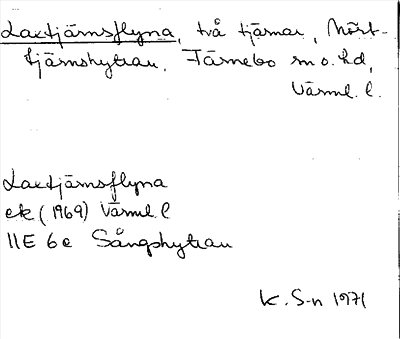 Laxtjärnsflyna, två tjärnar, Mört-
tjärnshyttan. Färnebo sn o. hd,
Värml. l.
Laxtjärnsflyna
ek (1969) Värml. l
11E 6e Sångshyttan
K. S-n 1971